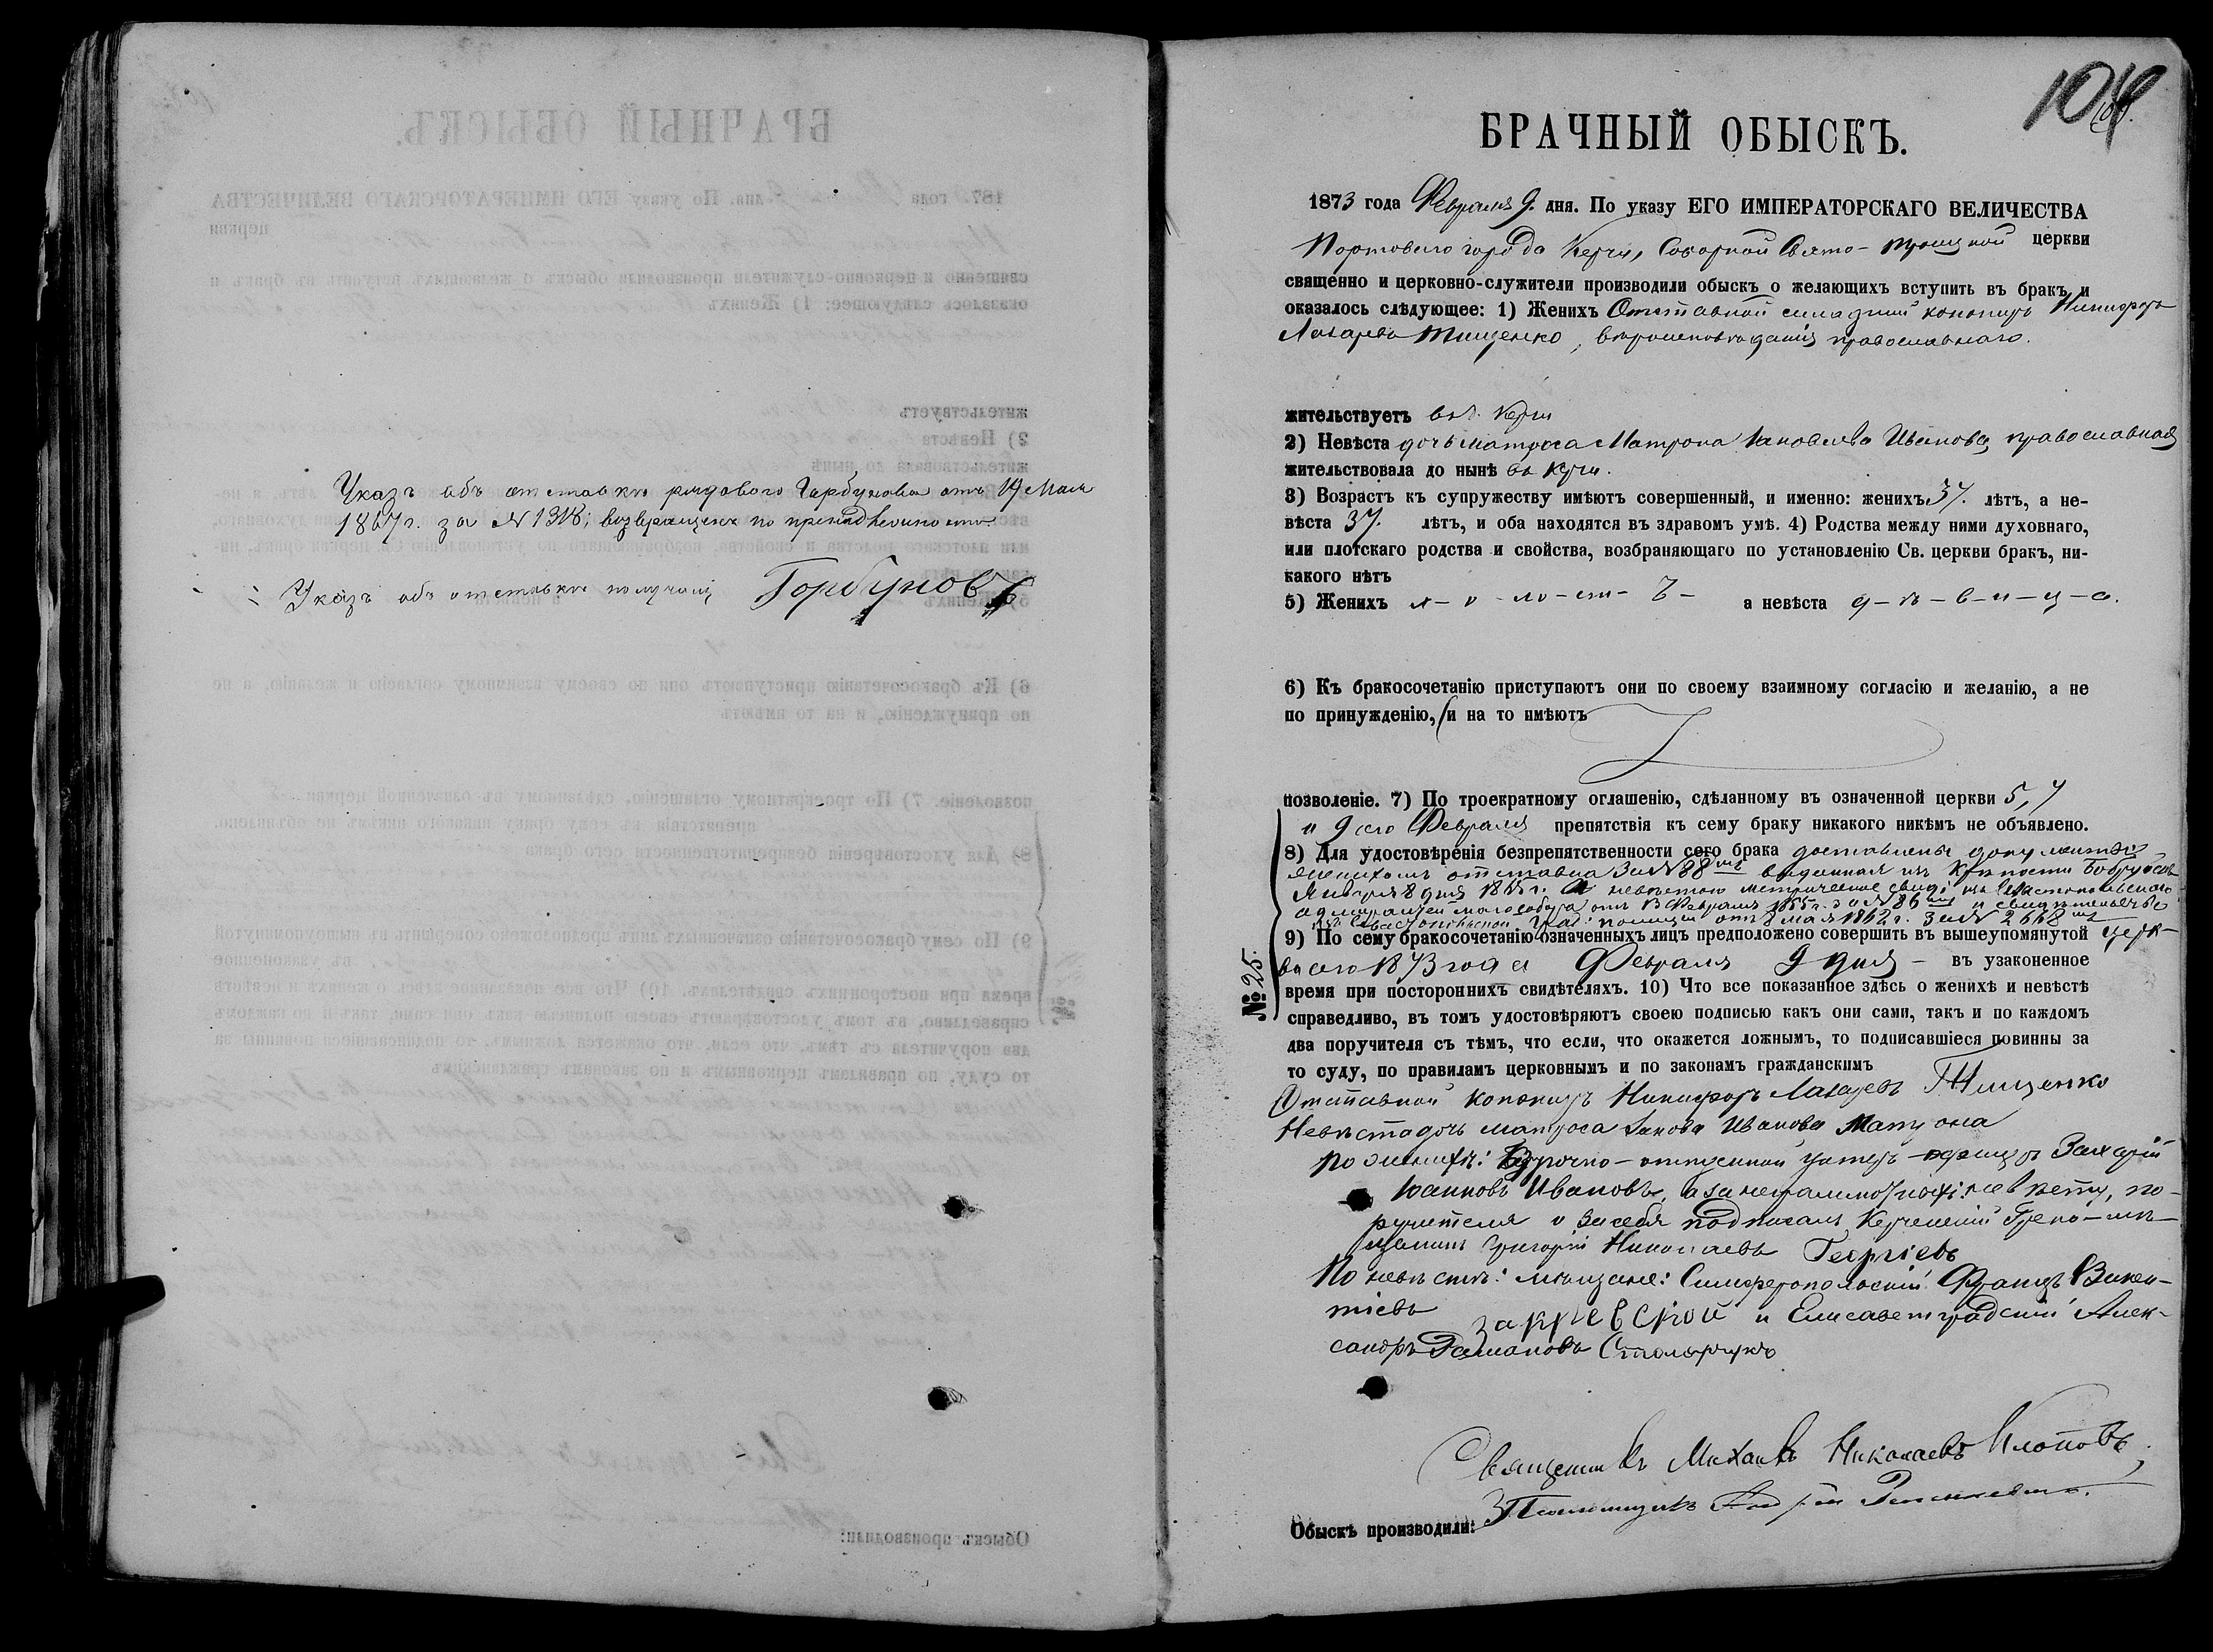 Указъ объ отставкѣ рядоваго Горбунова отъ 19 Мая
1867 г. за № 1318; возвращенъ по принадлежности
Указъ объ отставкѣ получилъ Горбуновъ
104
БРАЧНЫЙ ОБЫСКЪ.
1873 года Февраля 9. дня. По указу ЕГО ИМПЕРАТОРСКАГО ВЕЛИЧЕСТВА
Портоваго города Керчи, Соборной Свято-Троицкой церкви
священно и церковно-служители производили обыскъ о желающихъ вступить въ бракъ и
оказалось слѣдующее: 1) Женихъ Отставной младшій конониръ Никифоръ
Лазаревъ Тищенко, вѣроисповѣданія православнаго.
жительствуетъ въ г. Керчи
2) Невѣста дочь матроса Матрона Іаковлева Иванова, православная
жительствовала до нынѣ въ Керчи.
3) Возрастъ къ супружеству имѣютъ совершенный, и именно: женихъ 37. лѣтъ, а не-
вѣста 37. лѣтъ, и оба находятся въ здравомъ умѣ. 4) Родства между ними духовнаго,
или плотскаго родства и свойства, возбраняющаго по установленію Св. церкви бракъ, ни-
какого нѣтъ
5) Женихъ х-о-ло-ст-ъ- а невѣста д-ѣ-в-и-ц-а.
6) Къ бракосочетанію приступаютъ они по своему взаимному согласію и желанію, а не
по принужденію, (и на то имѣютъ
позволеніе. 7) По троекратному оглашенію, сдѣланному въ означенной церкви 5, 7
и 9 сего Февраля препятствія къ сему браку никакого никѣмъ не объявлено.
8) Для удостовѣренія безпрепятственности сего брака доставлены документы
женихомъ отставка за № 88 выданная изъ Крѣпости Бобруйска
Января 8 дня г. А невѣстою метрическое свид: изъ Севастопольскаго
адмиралтейскаго собора отъ Февраля 1855 г. за № 86 и свидѣтельство
изъ Севастопольской Град: полиціи отъ мая 1862 г. за № 2668
9) По сему бракосочетанію означенныхъ лицъ предположено совершить въ вышеупомянутой церк-
ви сего 1873 года Февраля 9 дня - въ узаконенное
№ 25.
время при постороннихъ свидѣтеляхъ. 10) Что все показанное здѣсь о женихѣ и невѣстѣ
справедливо, въ томъ удостовѣряютъ своею подписью какъ они сами, такъ и по каждомъ
два поручителя съ тѣмъ, что если, что окажется ложнымъ, то подписавшіеся повинны за
то суду, по правиламъ церковнымъ и по законамъ гражданскимъ
Отставной кононир Никифоръ Лазаревъ Тищенко
Невѣста дочь матроса Іакова Иванова Матрона
По женихѣ: безсрочно-отпускной унтеръ-офицеръ Захарій
Іоанновъ Ивановъ, а за неграмотностію: невѣсты, по-
ручителя и за себя подписалъ Керченскій Греко-мѣ-
щанинъ Григорій Николаевъ Георгіевъ
По невѣстѣ: мѣщане: Симферопольскій Францъ Викен-
тіевъ и Елисаветградскій Алек-
сандръ Романовъ Столярчукъ
Священникъ Михаилъ Николаевъ Клоповъ
Обыскъ производили: